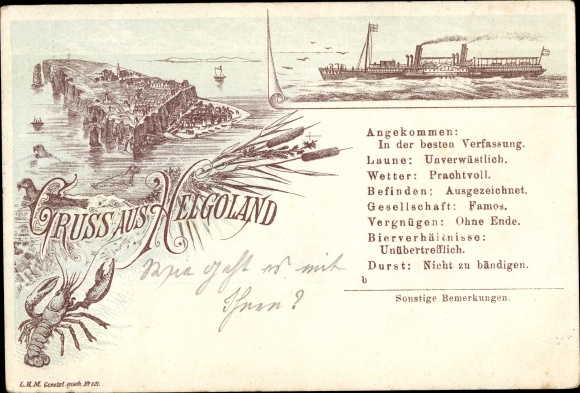 Angekommen:
In der besten Verfassung.
Laune: Unverwüstlich.
Wetter: Prachtvoll.
Befinden: Ausgezeichnet.
Gesellschaft: Famos.
Vergnügen: Ohne Ende.
Bierverhältnisse:
Unübertrefflich.
Durst: Nicht zu bändigen.
b
Sonstige Bemerkungen.
GRUSS AUS HELGOLAND
geht es mit
Ihnen?
L. H. M. Gesetzl. gesch. No 121.